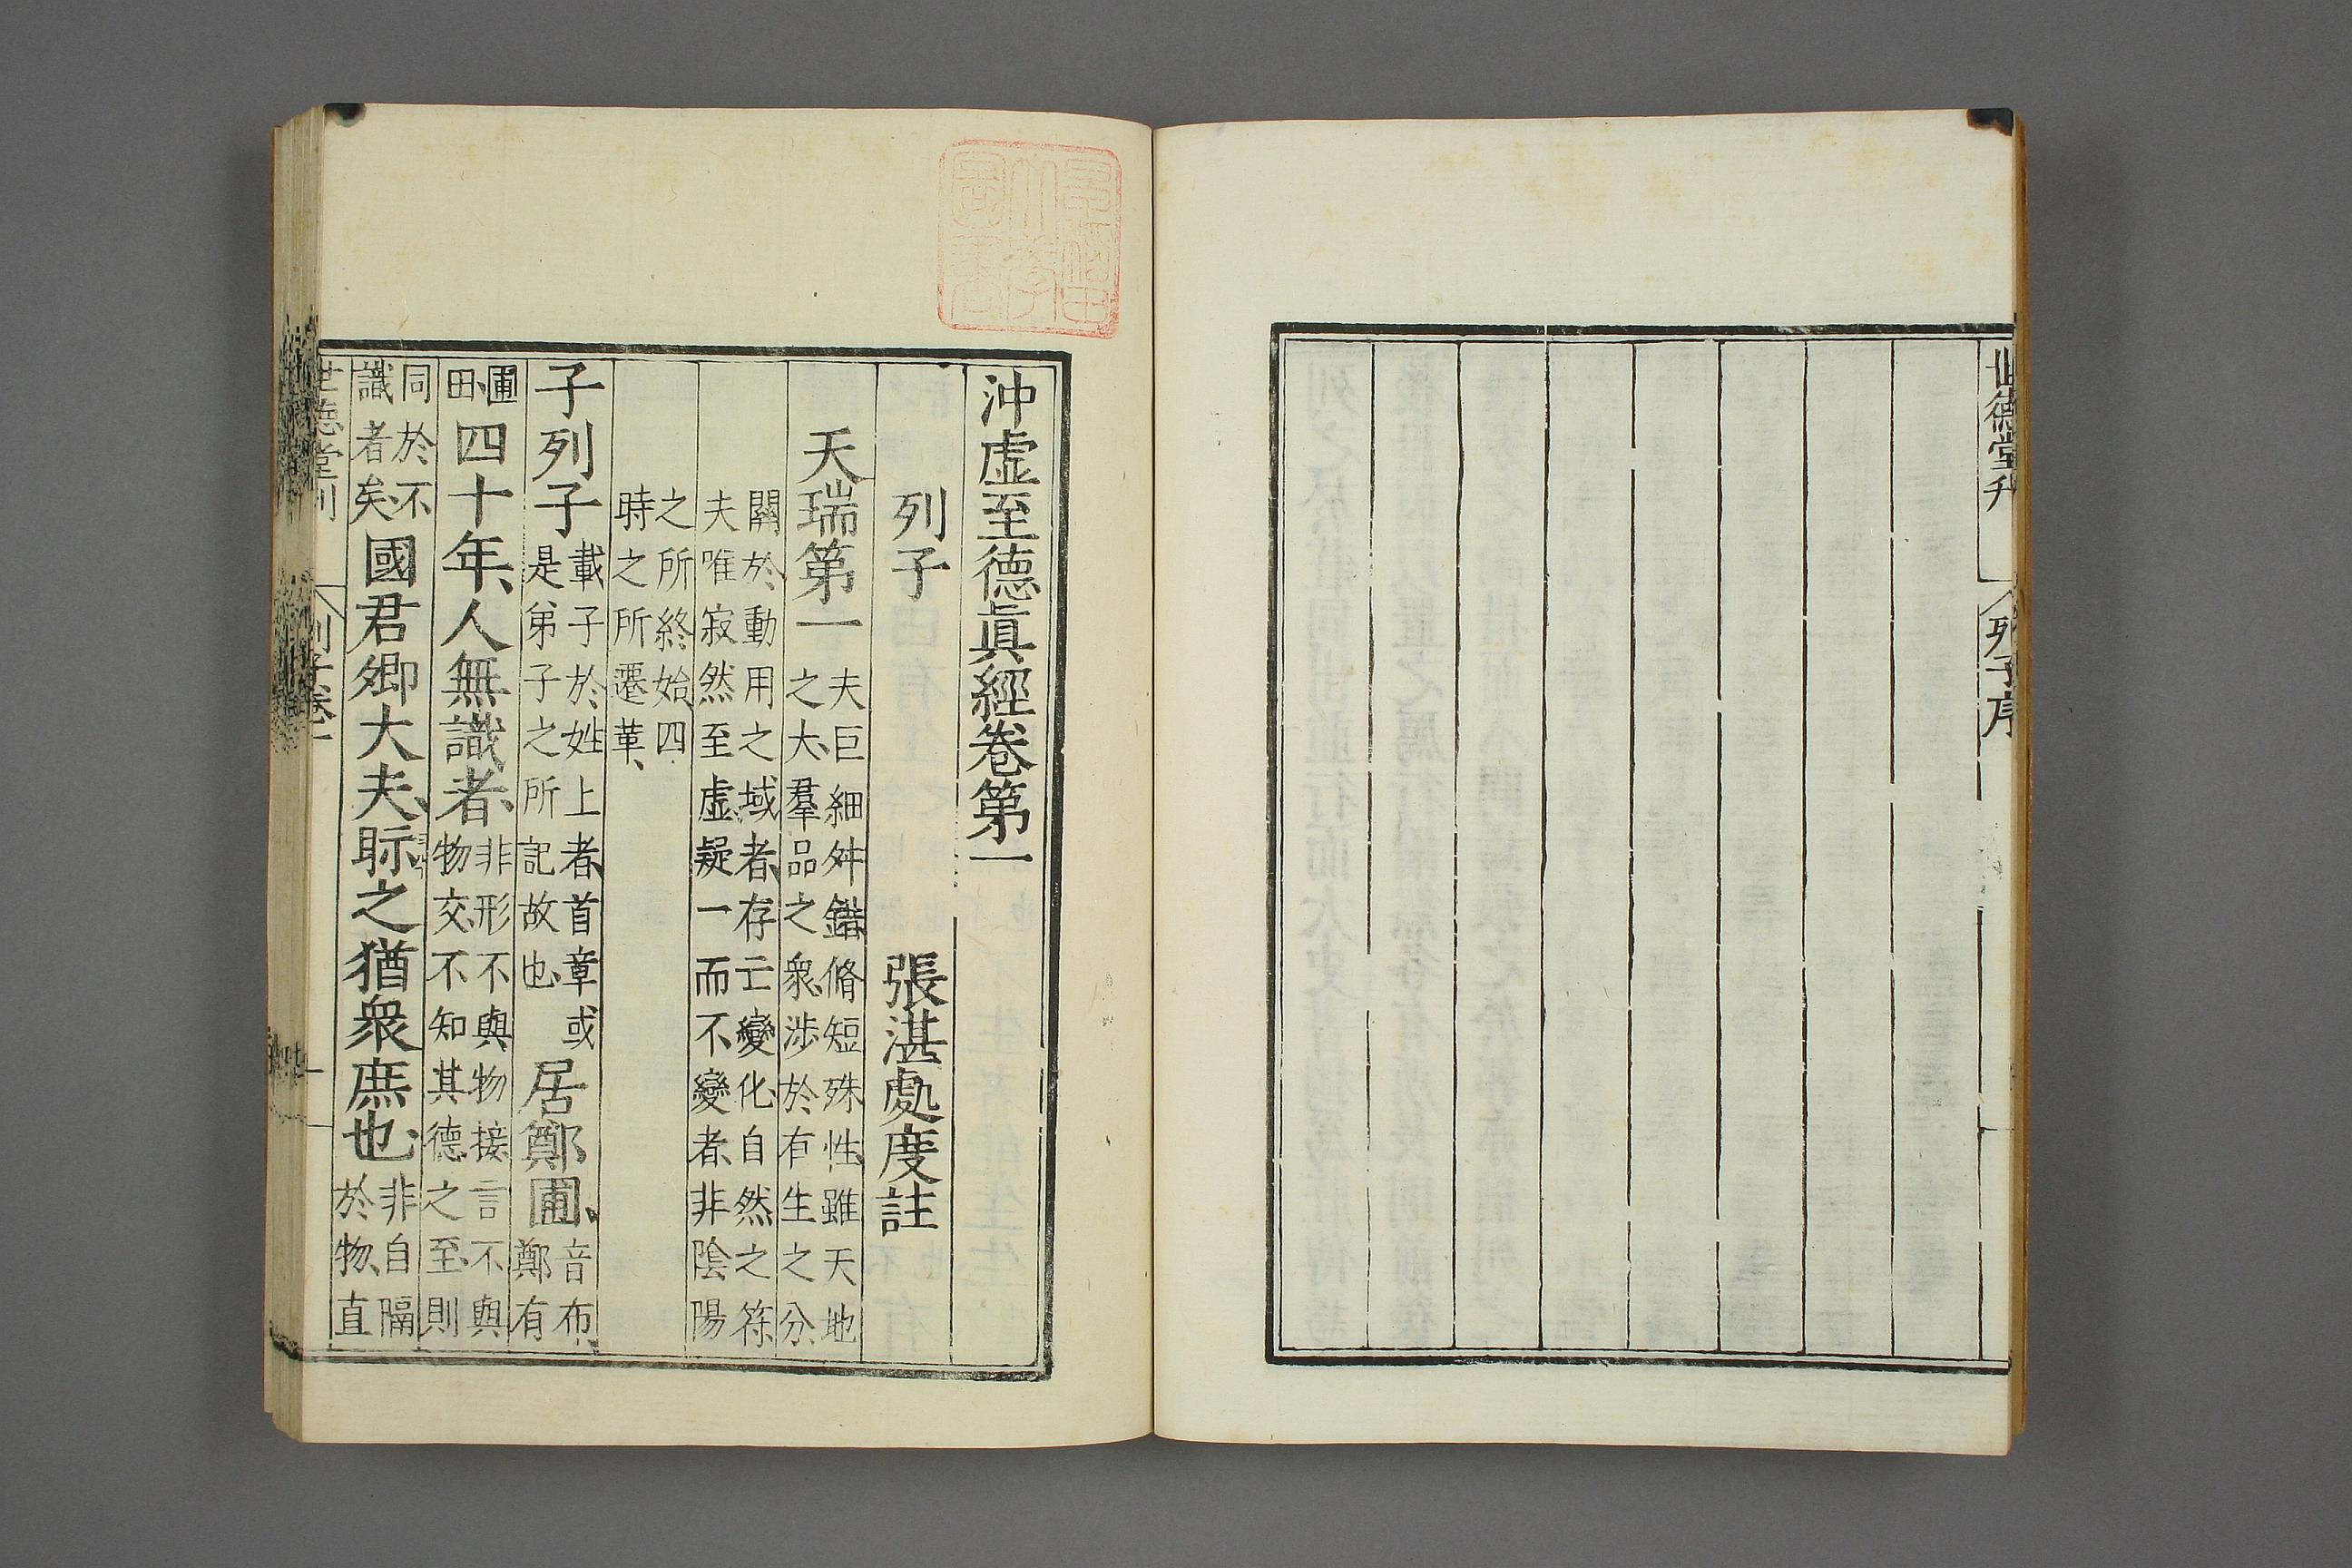 世德堂刊
列子序
早稲田大學圖書
沖虛至德眞經卷第一
列子 張湛處度註
天瑞第一 夫巨細舛錯、脩短殊性、雖天地之大、羣品之衆、涉於有生之分、
關於動用之域者、存亡變化、自然之符、夫唯寂然至虛、凝一而不變者、非陰陽
之所終始、四時之所遷革、
子列子 載子於姓上者、首章或是弟子之所記故也、 居鄭圃、 音布、鄭有
圃田、 四十年、人無識者、 非形不與物接言不與物交、不知其德之至、則
同於不識者矣、 國君卿大夫、眎之猶衆庶也、 非自隔於物、直
世德堂刊
列子卷一